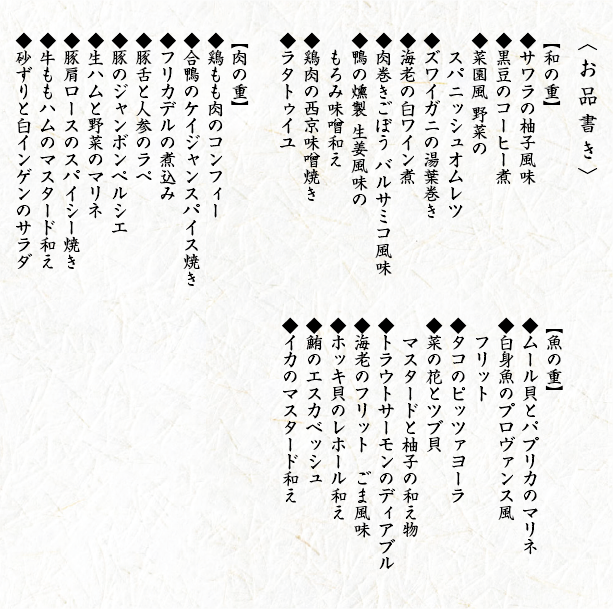 〈お品書き〉
【和の重】
◆サワラの柚子風味
◆黒豆のコーヒー煮
◆菜園風 野菜の
スパニッシュオムレツ
◆ズワイガニの湯葉巻き
◆海老の白ワイン煮
◆肉巻きごぼう バルサミコ風味
◆鴨の燻製 生姜風味の
もろみ味噌和え
◆鶏肉の西京味噌焼き
◆ラタトゥイユ
【肉の重】
◆鶏もも肉のコンフィー
◆合鴨のケイジャンスパイス焼き
◆フリカデルの煮込み
◆豚舌と人参のラペ
◆豚のジャンボンペルシエ
◆生ハムと野菜のマリネ
◆豚肩ロースのスパイシー焼き
◆牛ももハムのマスタード和え
◆砂ずりと白インゲンのサラダ
【魚の重】
◆ムール貝とパプリカのマリネ
◆白身魚のプロヴァンス風
フリット
◆タコのピッツァヨーラ
◆菜の花とツブ貝
マスタードと柚子の和え物
◆トラウトサーモンのディアブル
◆海老のフリット ごま風味
◆ホッキ貝のレホール和え
◆鮪のエスカベッシュ
◆イカのマスタード和え